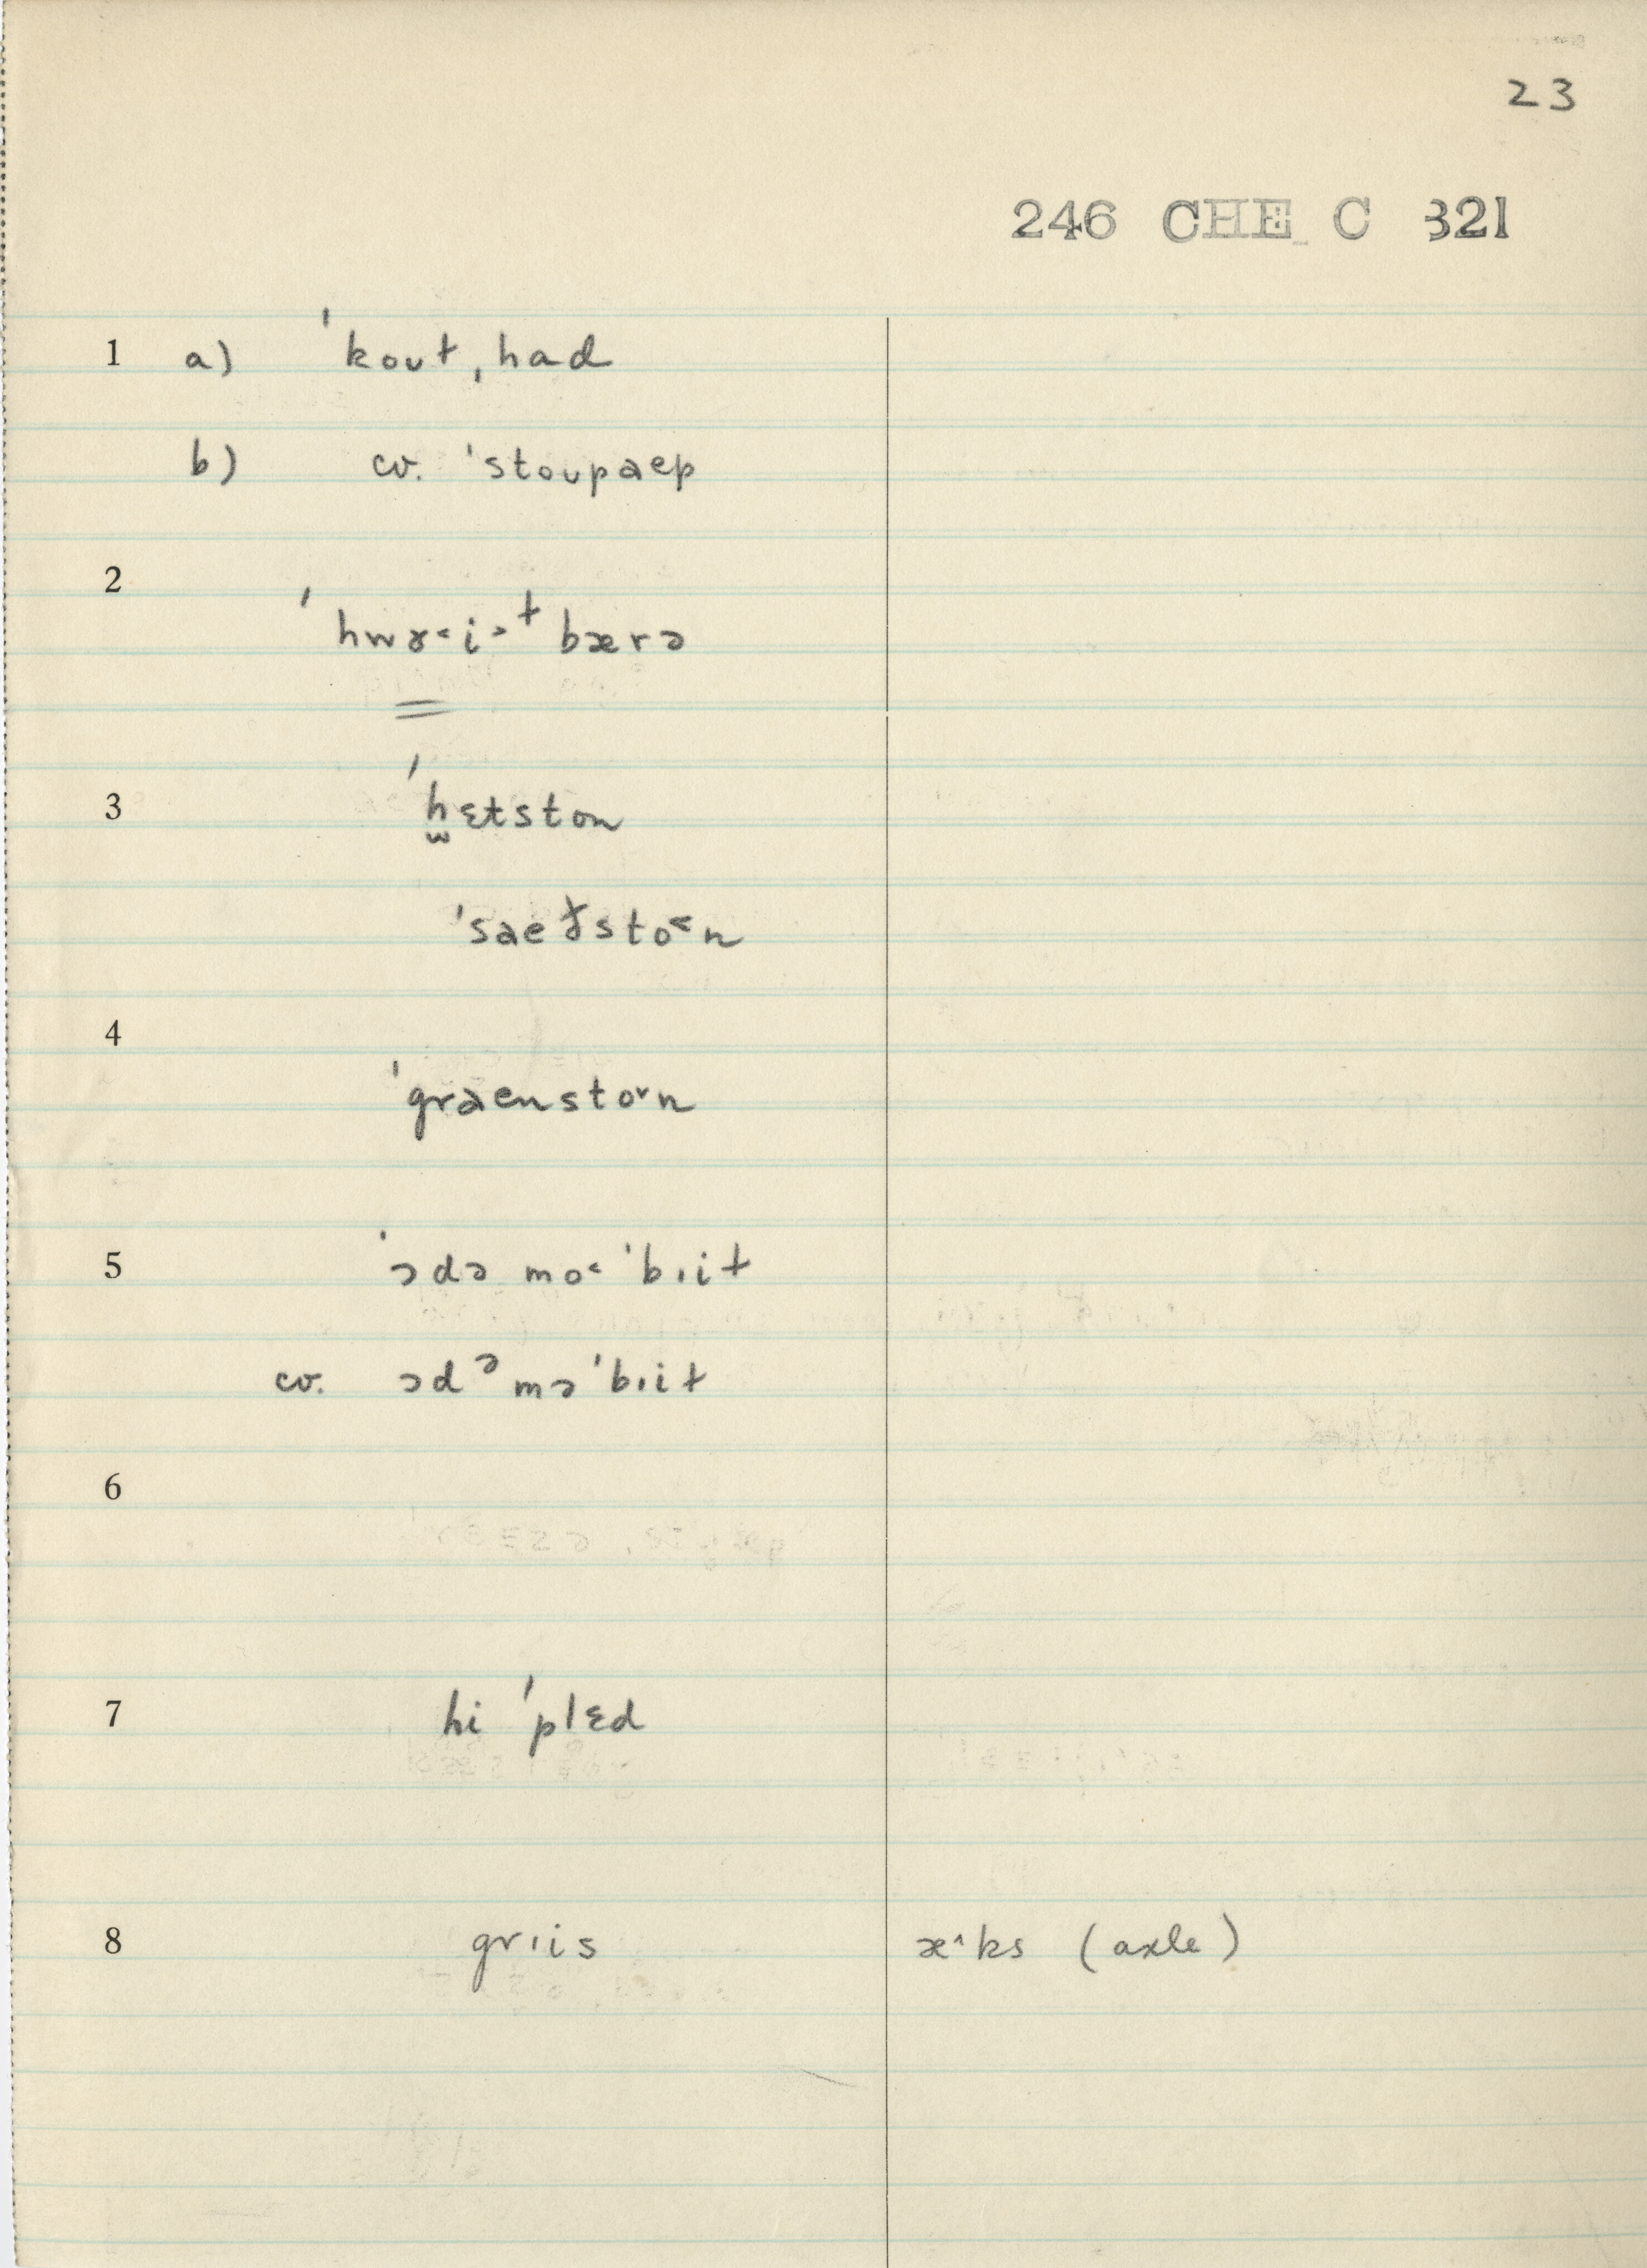 23
246 CHE C 321
1 a) ˈkoʊt, had
b) cv. ˈstoʊpaep
2
ˈhwɤ˂i˃ᵗ bærə
3 ˈh̫ɛtston
ˈsaeɫsto˂n
4
ˈgraensto˅n
5 ˈɔdə mo˂ ˈbɪit
cv. ɔdᵊ mə ˈbɪit
6
7 hi ˈplɛd
8 grɪis æ˄ks (axle)